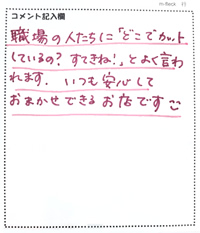 コメント記入欄
職場の人たちに「どこでカット
しているの? すてきね!」とよく言わ
れます. いつも安心して
おまかせできるお店です